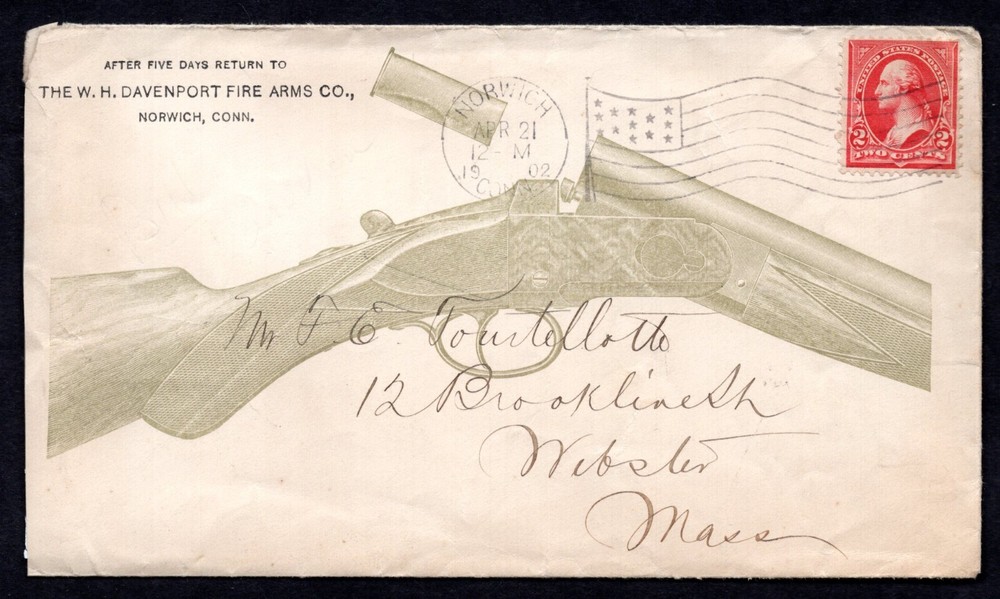 AFTER FIVE DAYS RETURN TO
THE W. H. DAVENPORT FIRE ARMS CO.,
NORWICH, CONN.
NORWICH
APR 21
12-M
1902
CONN.
UNITED STATES POSTAGE
2 2
TWO CENTS
Mr F. E. Tourtellotte
12 Brookline St
Webster
Mass